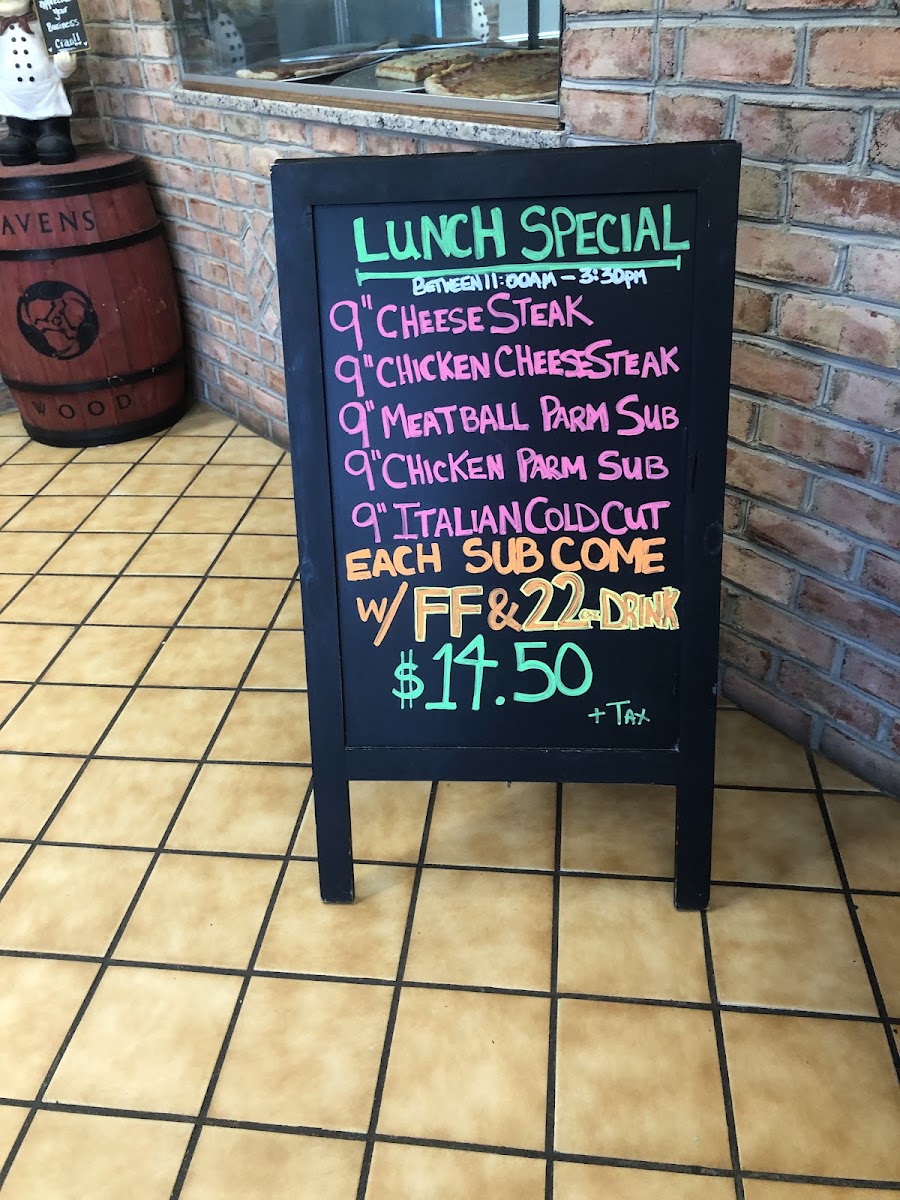 appreciate
your
Business
Ciao!!
AVENS
WOOD
LUNCH SPECIAL
BETWEEN 11:00AM - 3:30PM
9" CHEESE STEAK
9" CHICKEN CHEESE STEAK
9" MEATBALL PARM SUB
9" CHICKEN PARM SUB
9" ITALIAN COLD CUT
EACH SUB COME
W/ FF & 22 oz DRINK
$14.50
+ TAX